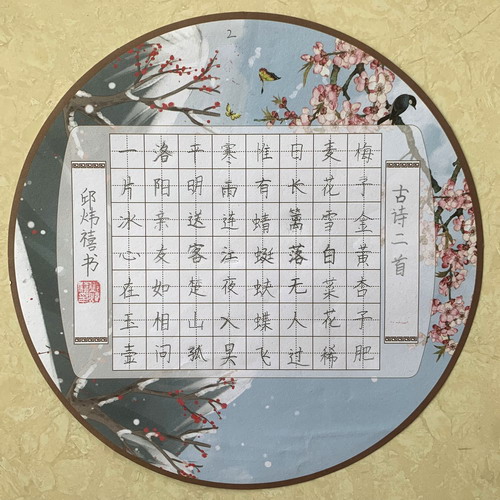 2
古诗二首
梅子金黄杏子肥
麦花雪白菜花稀
日长篱落无人过
惟有蜻蜓蛱蝶飞
寒雨连注夜入吴
平明送客楚山孤
洛阳亲友如相问
一片冰心在玉壶
邱炜禧书